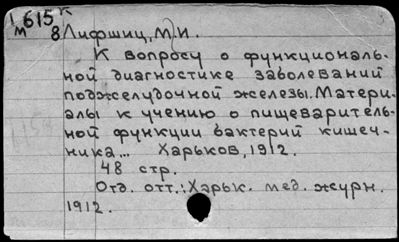 1 615 К
м 8 Лифшиц, М.И.
К вопросу о функциональ-
ной диагностике заболеваний
поджелудочной железы. Матери-
алы к учению о пищеваритель-
ной функции бактерий кишеч-
ника... Харьков, 1912.
48 стр.
Отд. отт.: Харьк. мед. журн.
1912.